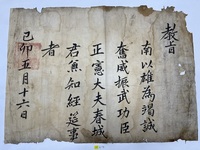 教旨
南以雄為渴誠
奮威振武功臣
正憲大夫春城
君兼知經筵事
者
己卯五月十六日